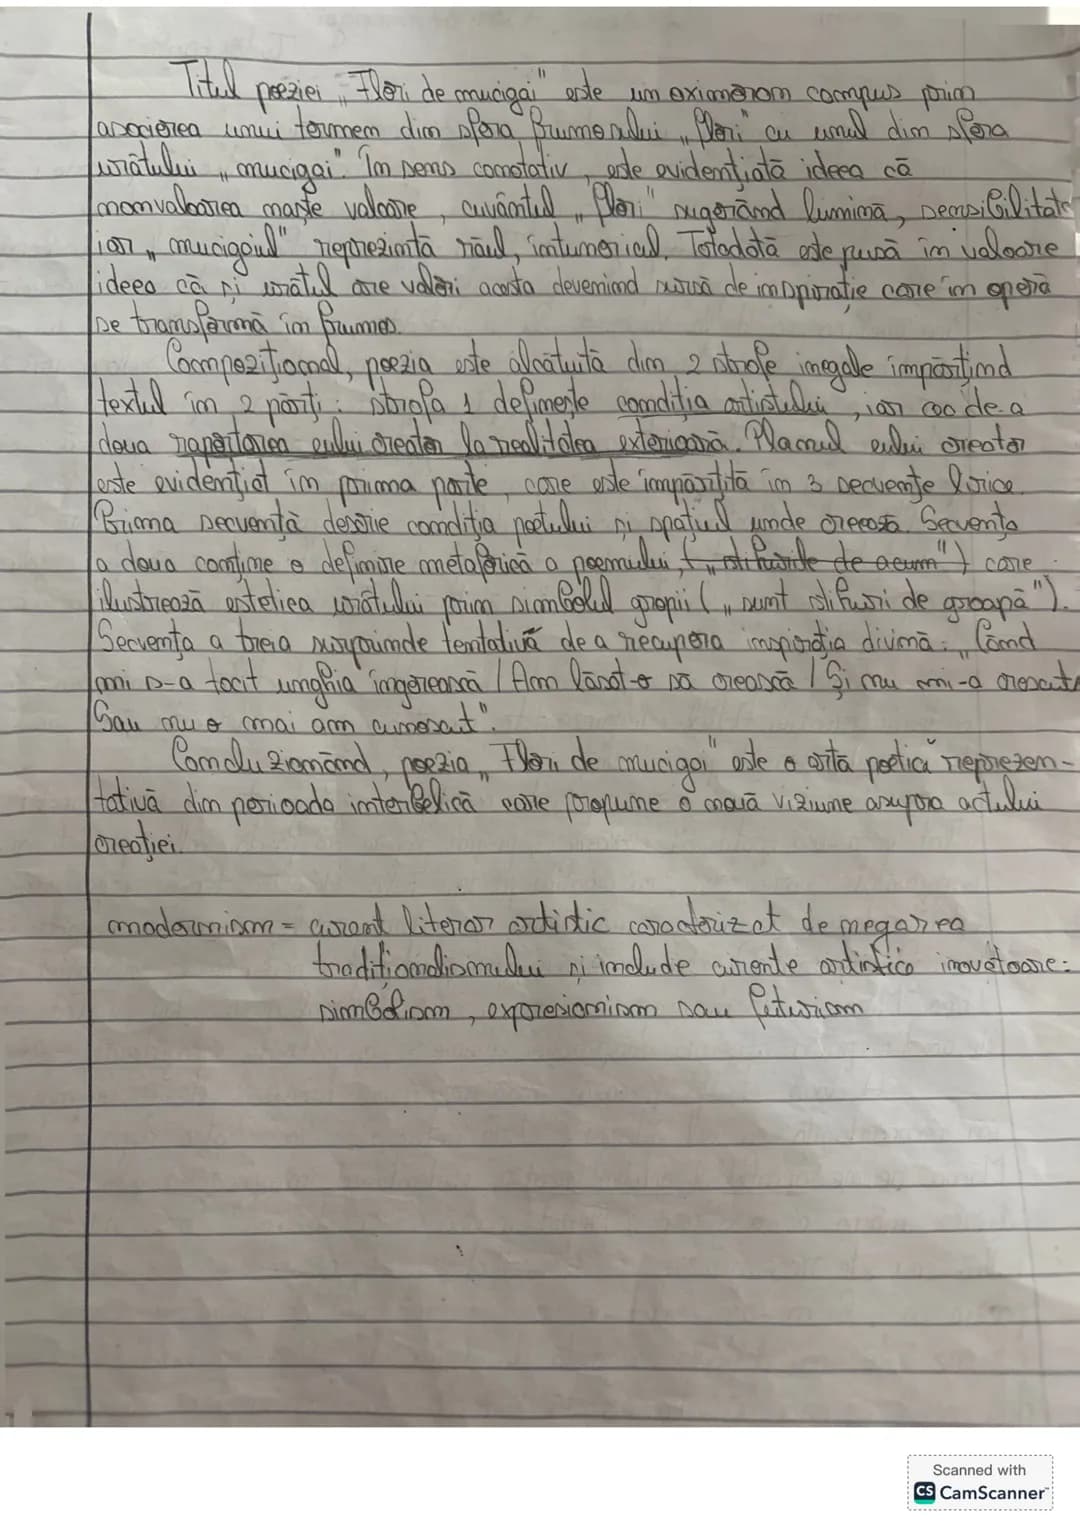 Titlul poeziei „Flori de mucigai" este un oximoron compus prin
asocierea unui termen din sfera frumosului „flori" cu unul din sfera
urâtului „mucigai". În sens conotativ, este evidențiată ideea că
nonvaloarea naște valoare, cuvântul „flori" sugerând lumină, sensibilitate
iar „mucigaiul" reprezintă răul, întunericul. Totodată este pusă în valoare
ideea că și urâtul are valori acesta devenind sursă de inspirație care în operă
se transformă în frumos.
Compozițional, poezia este alcătuită din 2 strofe inegale împărțind
textul în 2 părți: strofa 1 definește condiția artistului, iar cea de-a
doua raportarea eului creator la realitatea exterioară. Planul eului creator
este evidențiat în prima parte, care este împărțită în 3 secvențe lirice.
Prima secvență descrie condiția poetului și spațiul unde creează. Secvența
a doua conține o definire metaforică a poemului, („stihurile de acum") care
ilustrează estetica urâtului prin simbolul gropii („sunt stihuri de groapă").
Secvența a treia surprinde tentativă de a recupera inspirația divină: „Când
mi s-a tocit unghia îngerească / Am lăsat-o să crească / Și nu mi-a crescut
Sau nu o mai am cunoscut".
Concluzionând, poezia „Flori de mucigai" este o artă poetică reprezen-
tativă din perioada interbelică care propune o nouă viziune asupra actului
creației.
modernism = curent literar artistic caracterizat de negarea
tradiționalismului și include curente artistice inovatoare:
simbolism, expresionism sau futurism
Scanned with
CS CamScanner